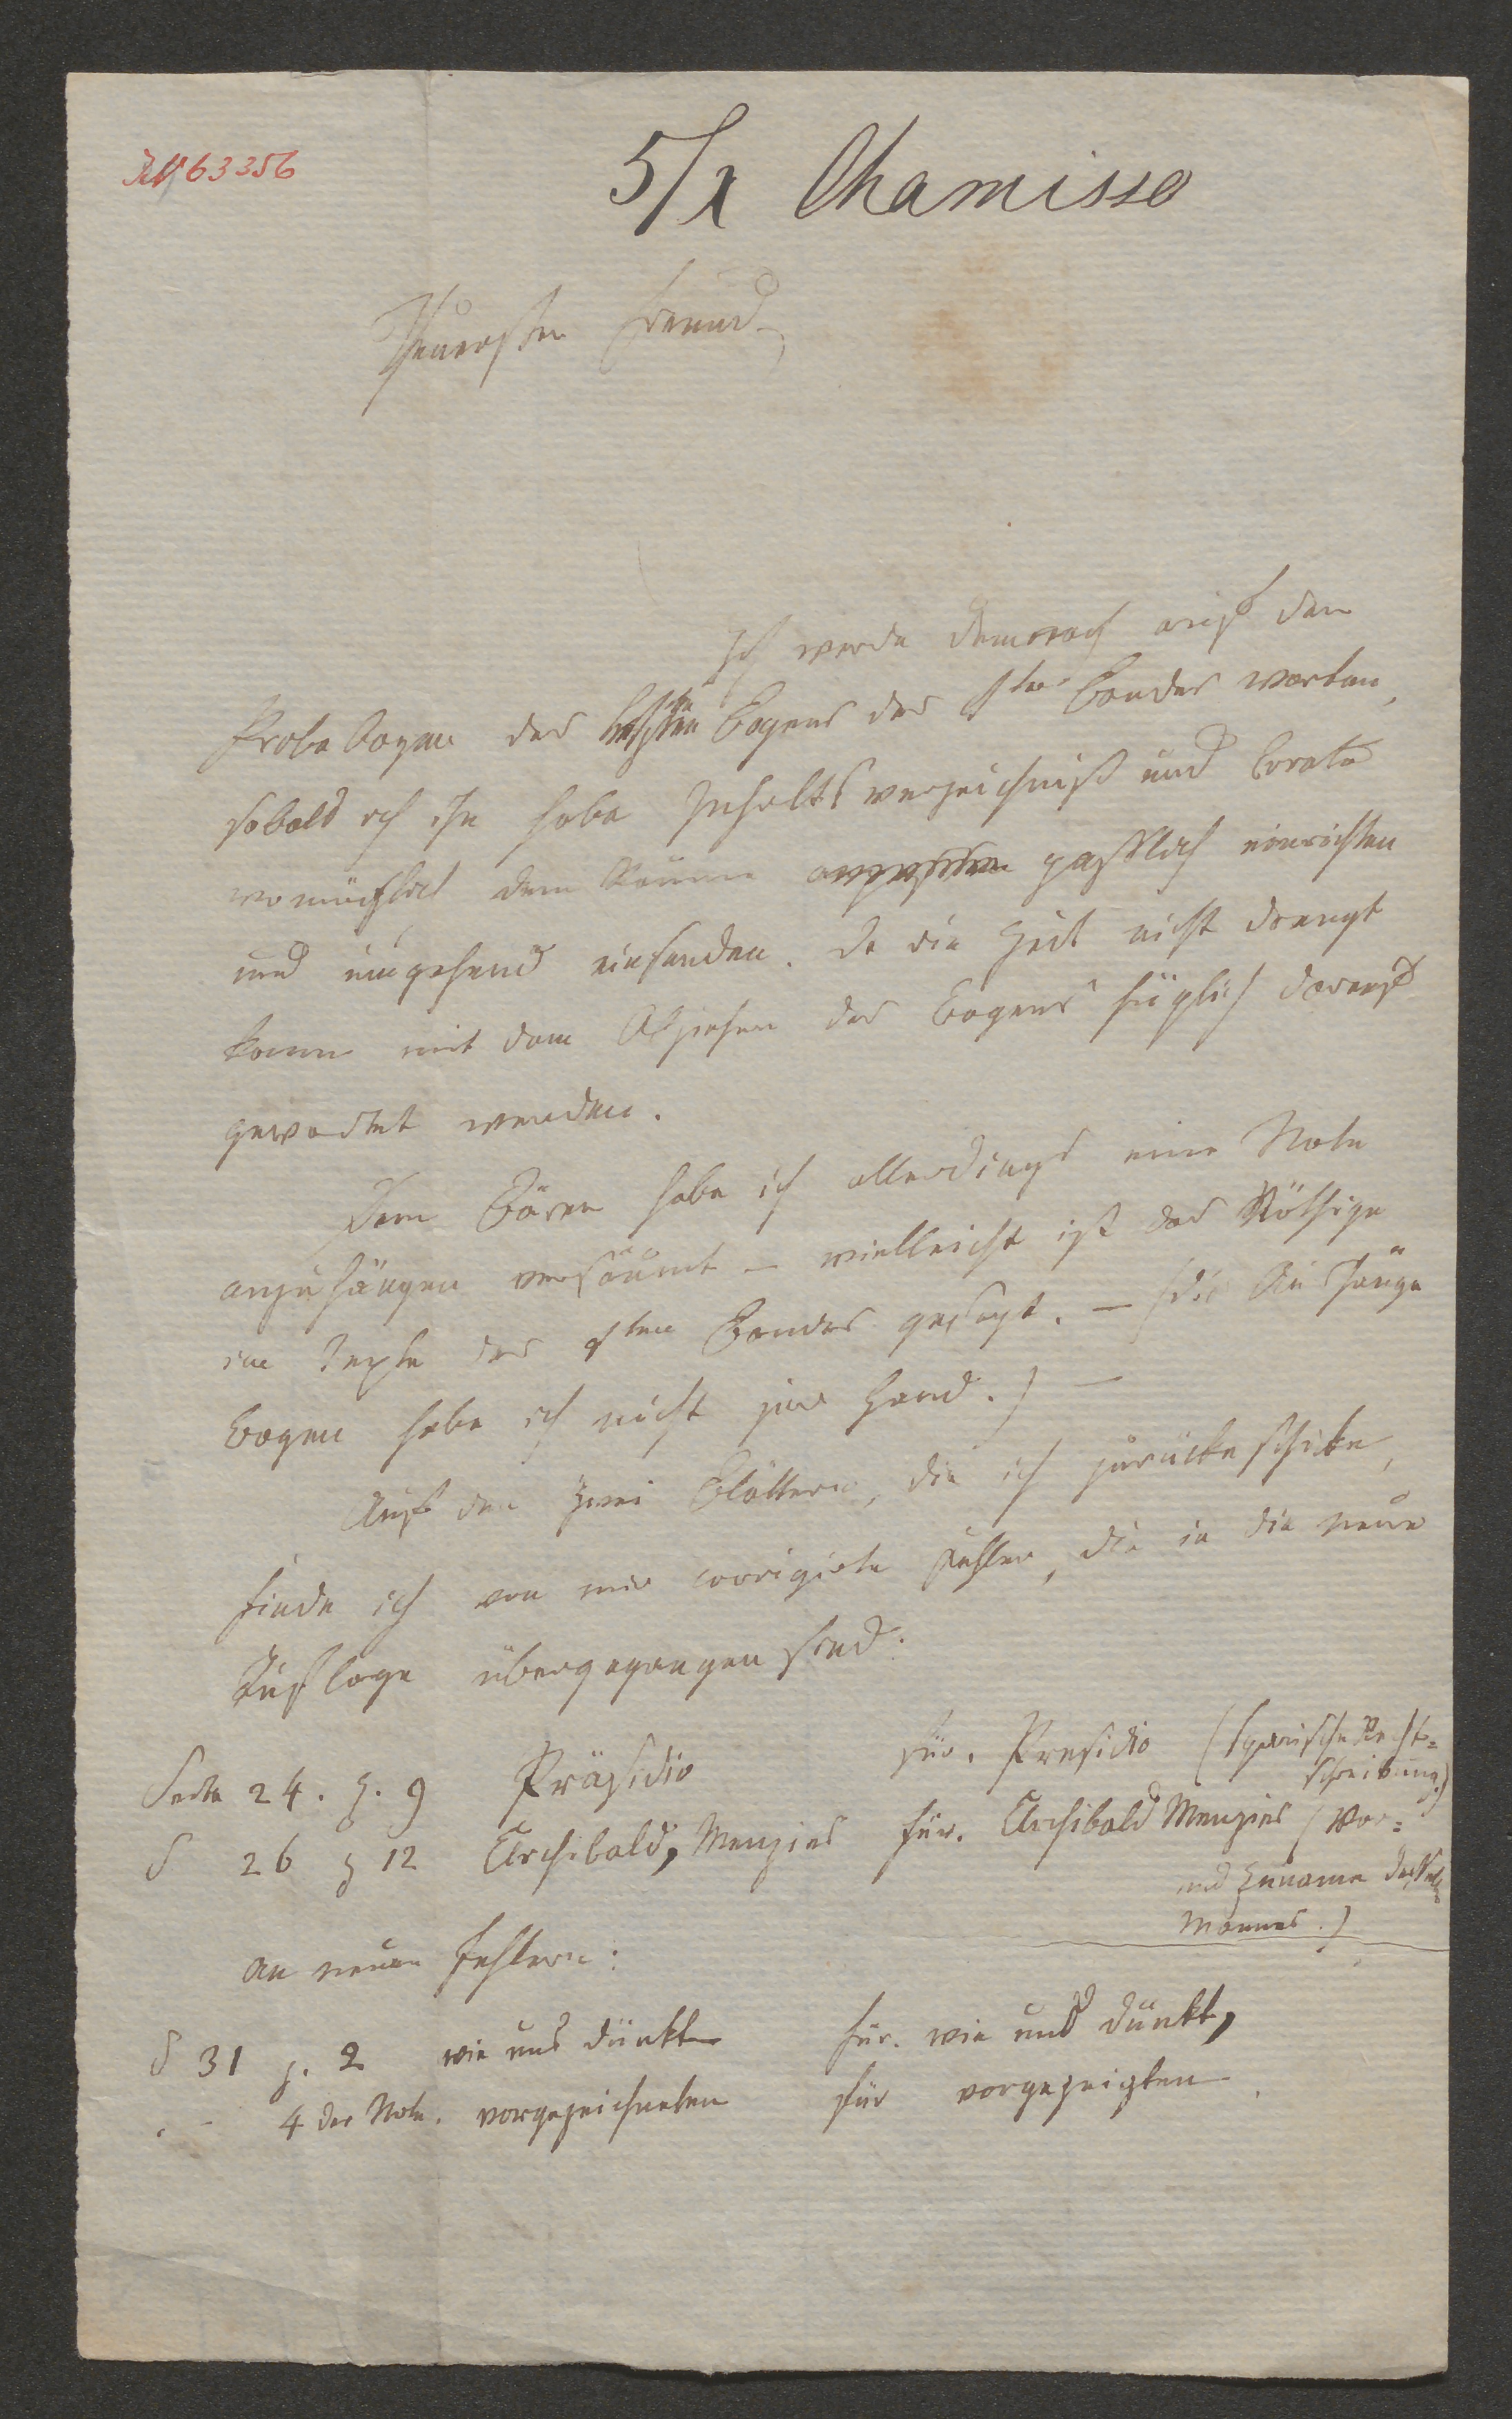 63356
5/X Chamisso
Theuerster Freund,
Ich werde demnach auf den
Probebogen des letzten Bogens des 1ten Bandes warten,
sobald ich ihn habe Inhaltsverzeichniß und Errata
wo möglich dem Raume passlich einrichten
und umgehend einsenden. Da die Zeit nicht drengt
kann mit dem Abziehen des Bogens füglich darauf
gewartet werden.
Dem Bären habe ich allerdings eine Note
anzuhängen versäumt – vielleicht ist das Nöthige
im Texte des 1ten Bandes gesagt. – (die Aushänge
bogen habe ich nicht zur Hand.) –
Auf den zwei Blättern, die ich zurücke schicke,
finde ich von mir corrigirte Fehler, die in die neue
Auflage übergegangen sind.
Seite 24. Z. 9 Präsidio für. Presidio (Spanische Recht=
schreibung.)
S 26 Z 12 Archibald, Menzies für. Archibald Menzies (Vor=
und Zuname desselben
Mannes.)
An neuen Fehlern:
S 31 Z. 2 wie uns dünkte für. wie uns dünkt,
– 4 der Note. vorgezeichneten für vorgezeigten.